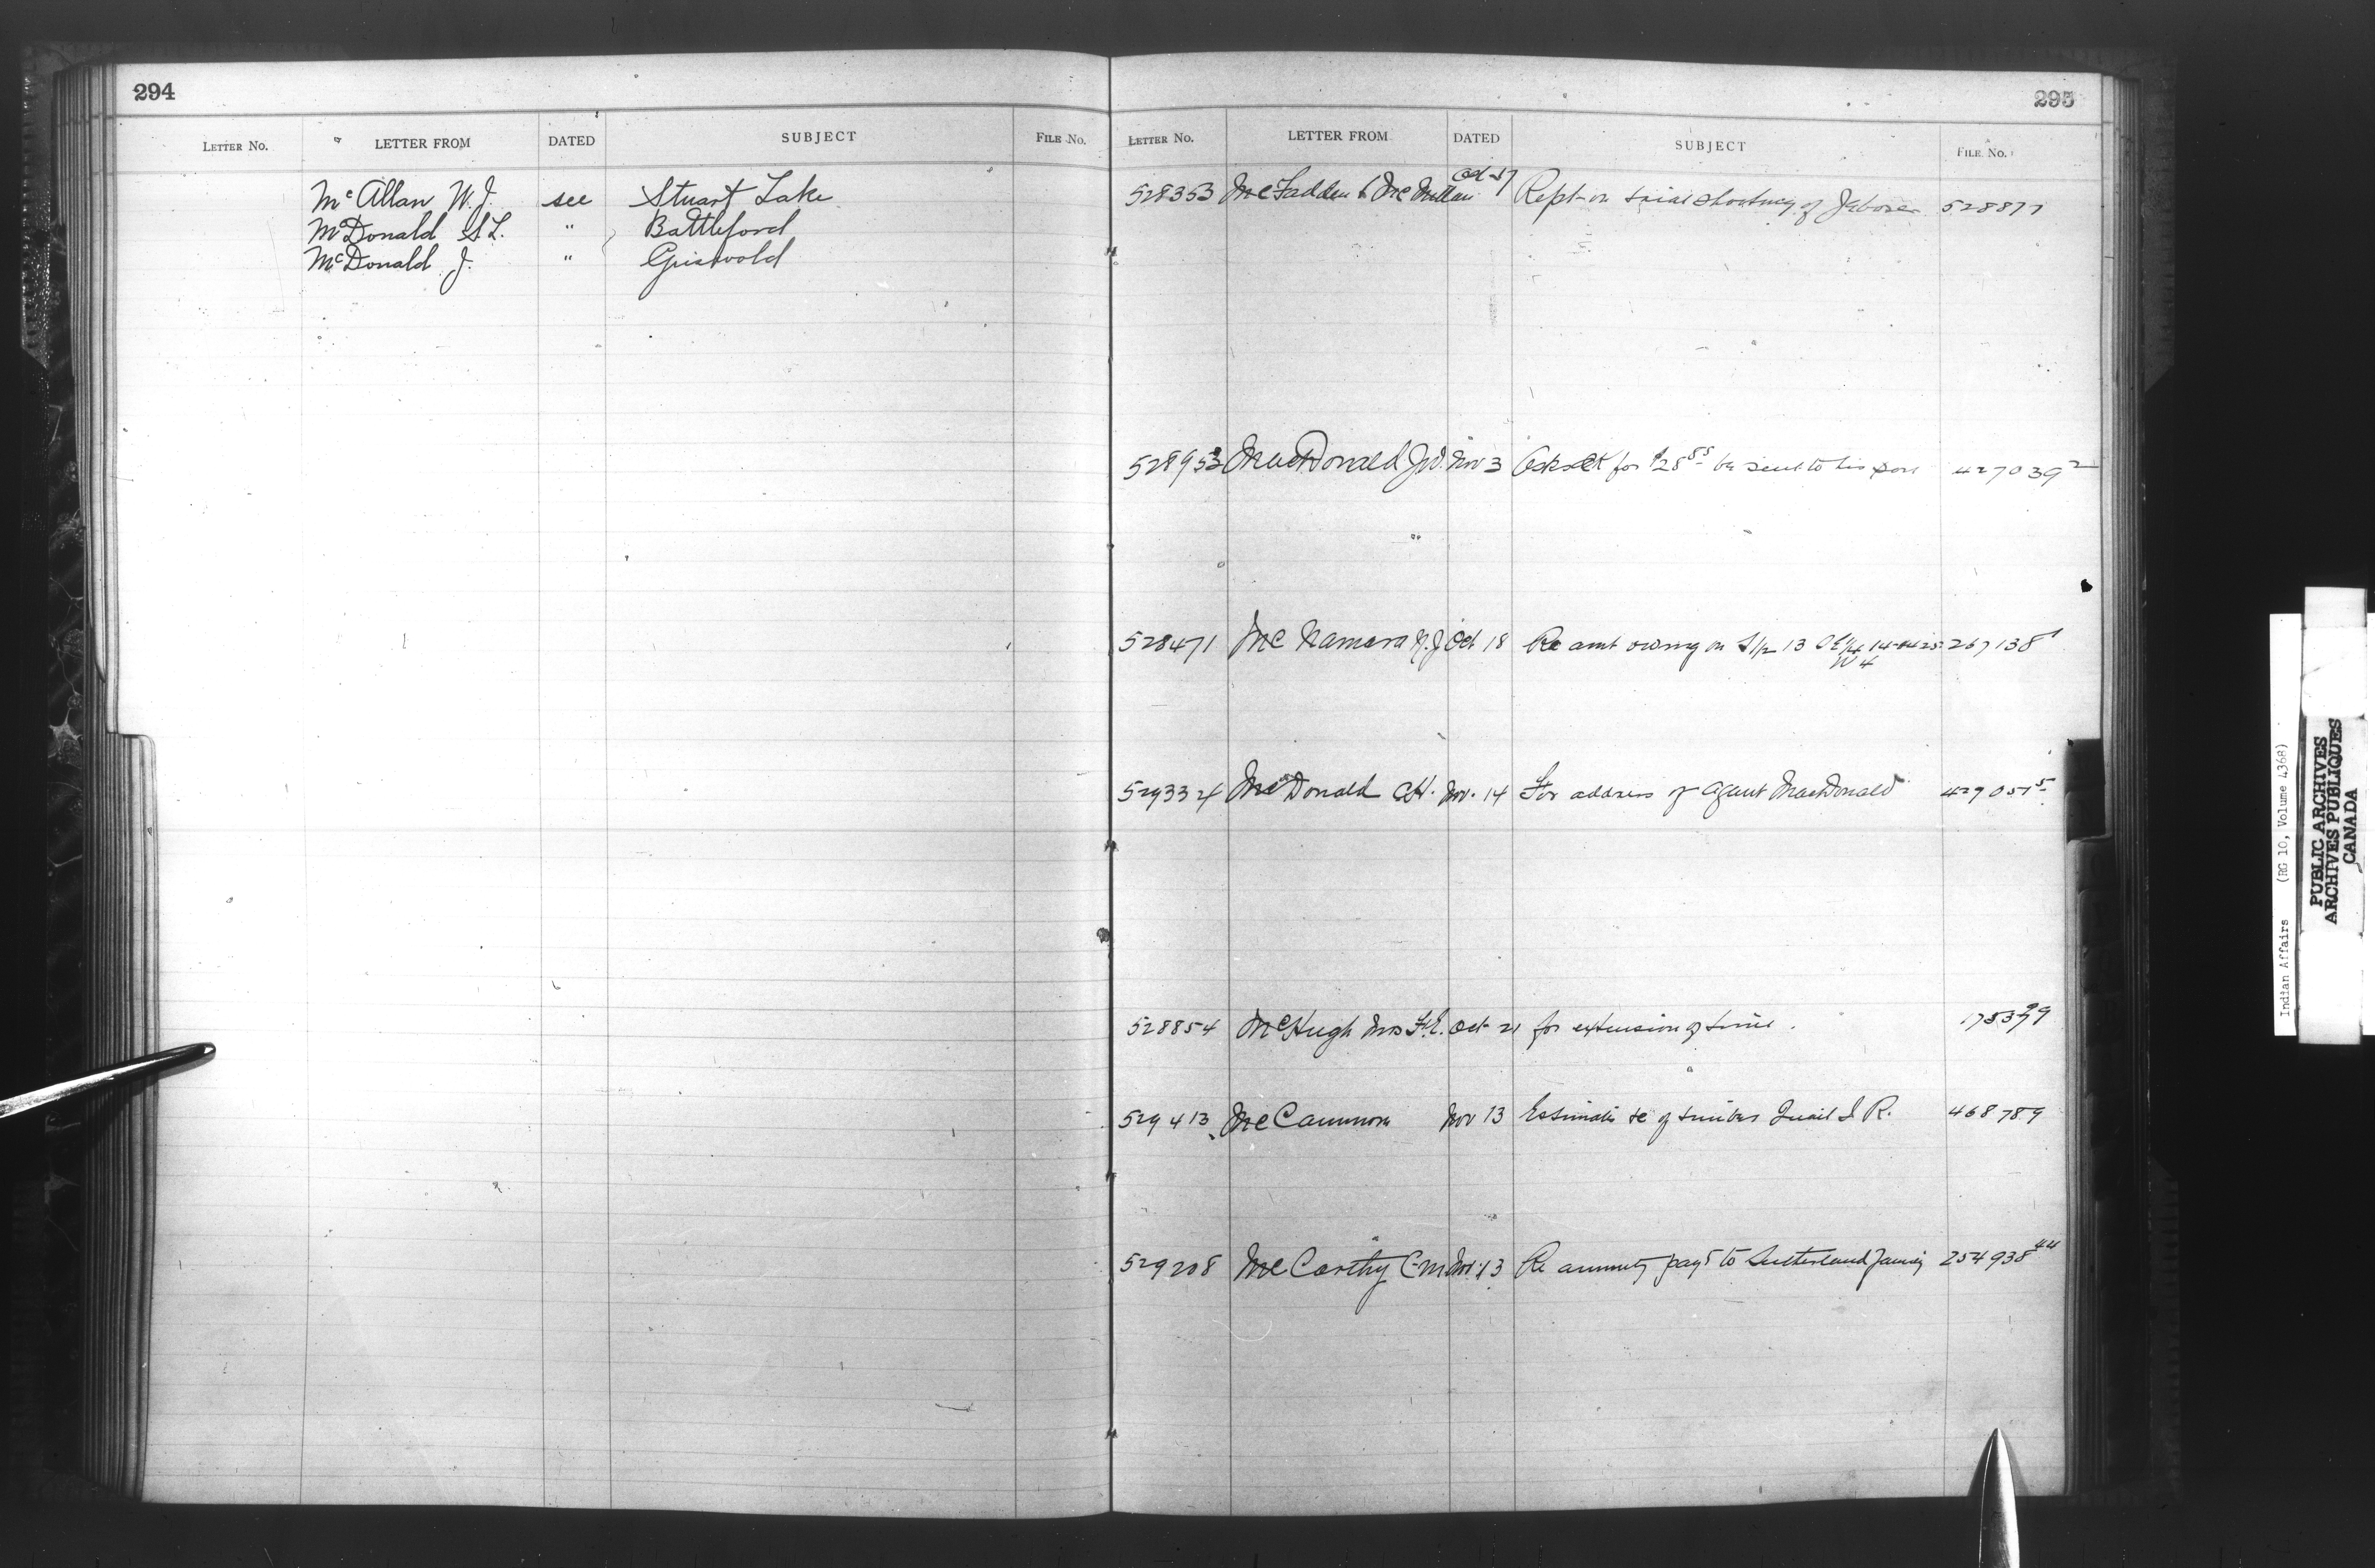 294
LETTER NO. LETTER FROM DATED SUBJECT FILE NO.
McAllan W. J. see Stuart Lake
McDonald S L. " Battleford
McDonald J. " Griswold
295
LETTER NO. LETTER FROM DATED SUBJECT FILE NO.
528353 McFadden & McMillan Oct 17 Rept on trial shooting of 528877
528953 MacDonald J.D. Nov 3 Asks for $28 85 be sent to his 427039 2
528471 McNamara Oct 18 Re amt owing on S 1/2 13 267138 1
W 4
529334 McDonald Nov. 14 For address of Agent MacDonald 429051 5
528854 McHugh Mrs F.E. Oct 21 for extension of time.
529413 McCammon Nov 13 Estimate &c of timber I. R. 468789
529208 McCarthy C M Nov. 13 Re annuity payt to Sutherland family 254938 44
Indian Affairs (RG 10, Volume 4368)
PUBLIC ARCHIVES
ARCHIVES PUBLIQUES
CANADA